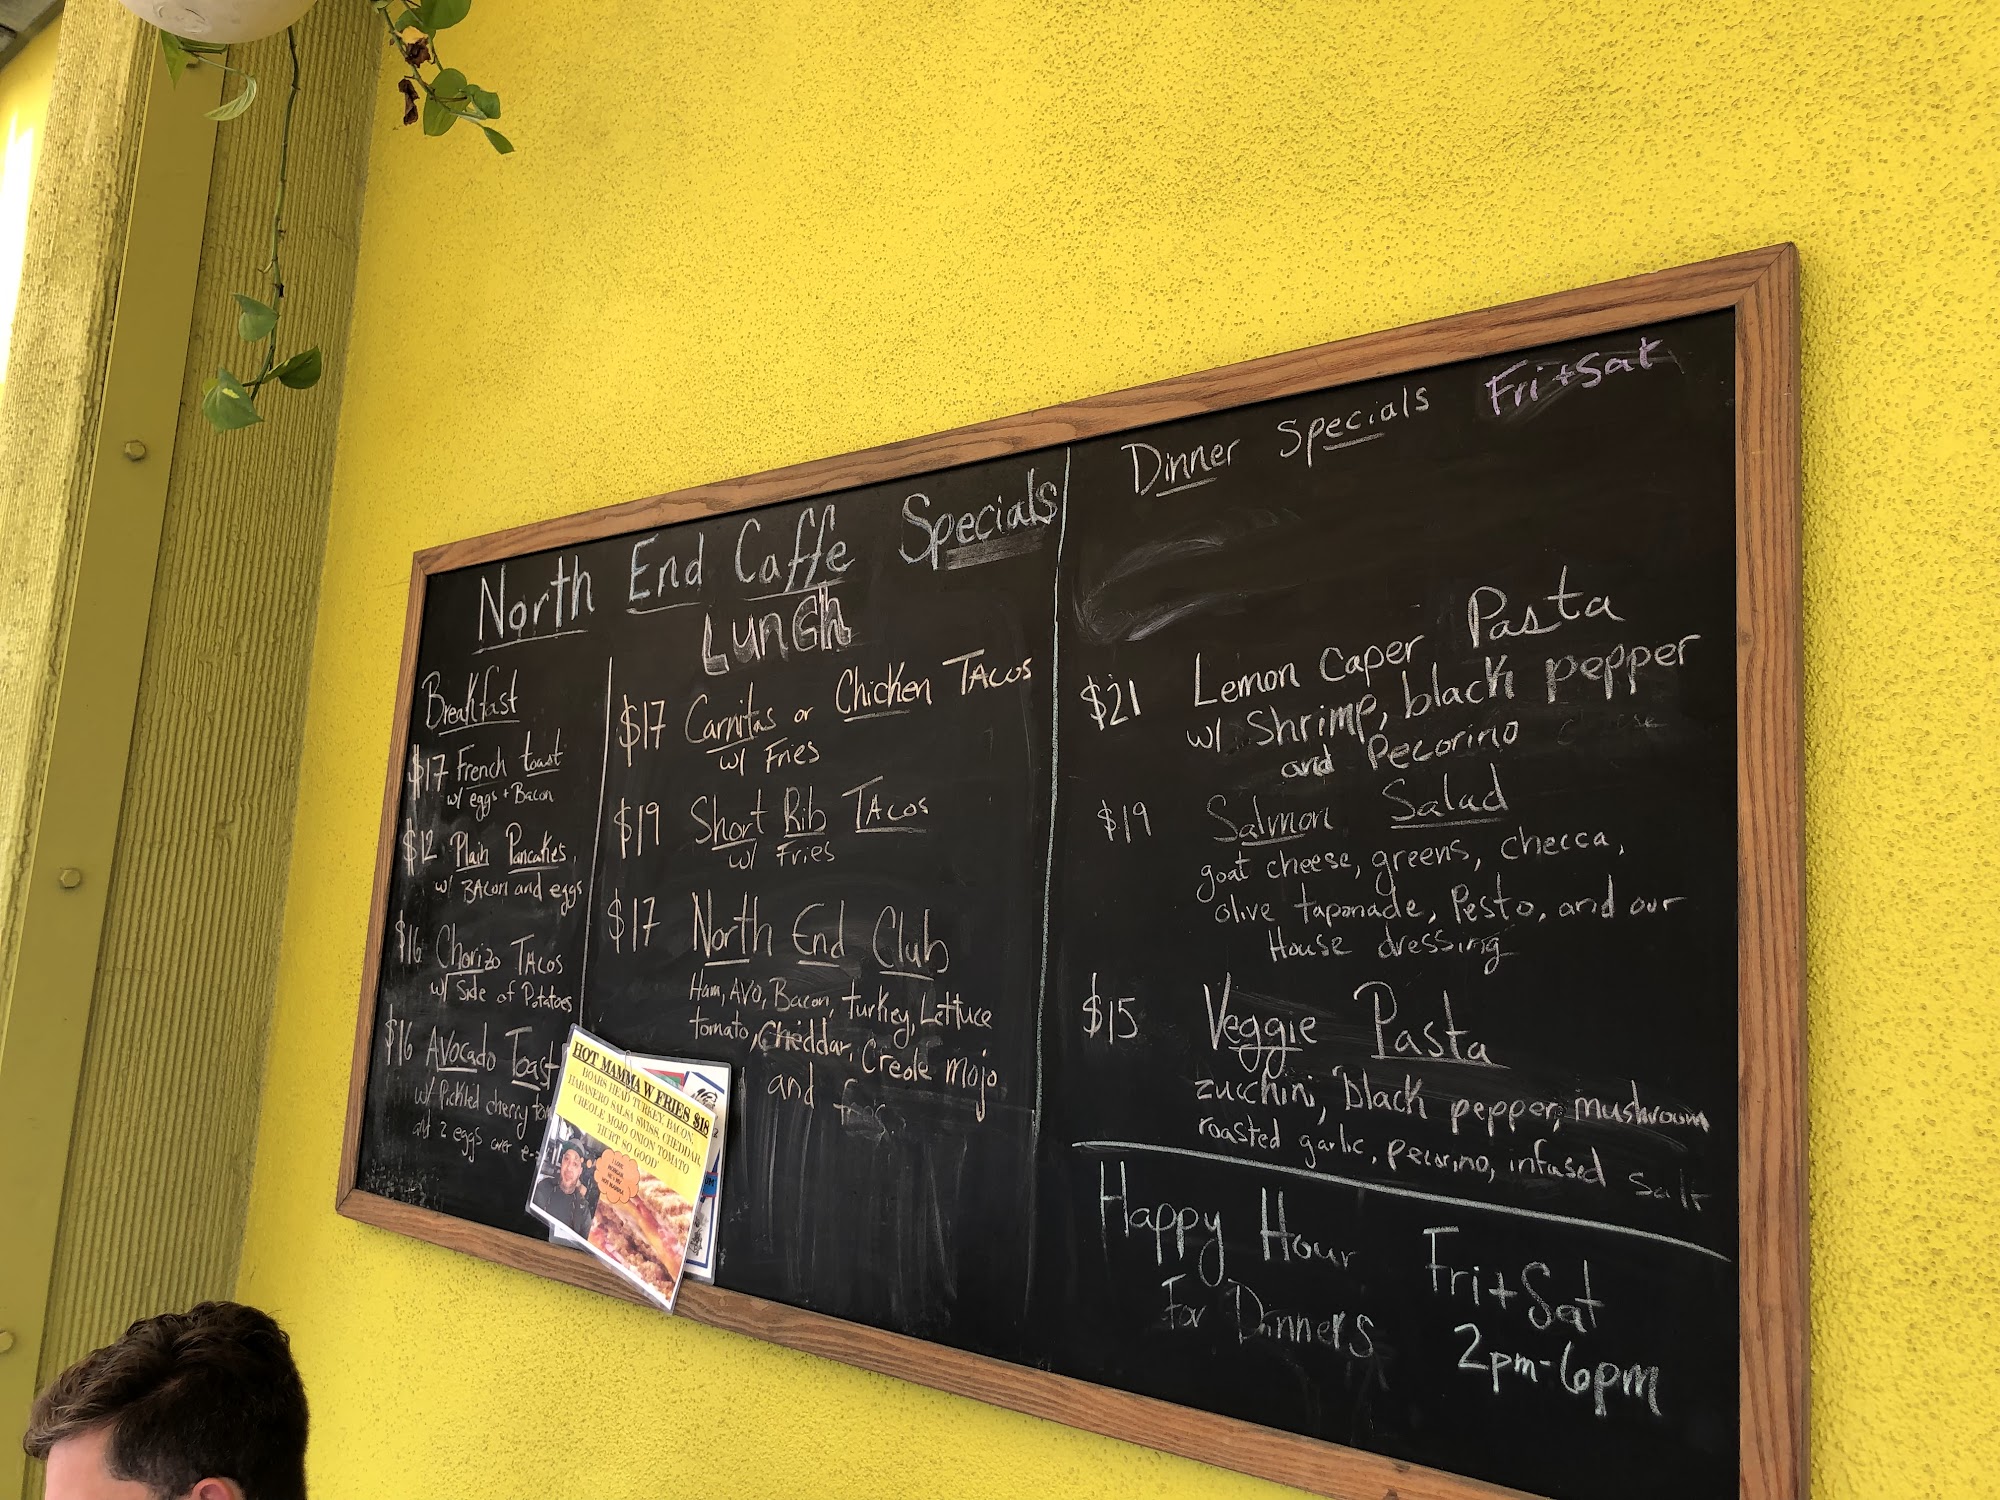 North End Caffe Specials
Breakfast
$17 French toast
w/ eggs + Bacon
$12 Plain Pancakes
w/ BAcon and eggs
$16 Chorizo TAcos
w/ Side of Potatoes
$16 Avocado Toast
w/ Pickled cherry
and 2 eggs over
LUNCh
$17 Carnitas or Chicken TACOS
w/ Fries
$19 Short Rib TAcos
w/ Fries
$17 North End Club
Ham, AVO, Bacon, turkey, Lettuce
tomato, Cheddar, Creole mojo
and fries
HOT MAMMA W FRIES $18
BOARS HEAD TURKEY, BACON,
HABANERO SALSA SWISS, CHEDDAR,
CREOLE MOJO ONION, TOMATO
SO GOOD'
Dinner Specials Fri + Sat
$21 Lemon Caper Pasta
w/ Shrimp, black pepper
and Pecorino
$19 Salmon Salad
goat cheese, greens, checca,
olive taponade, Pesto, and our
House dressing
$15 Veggie Pasta
zucchini, black pepper, mushroom
roasted garlic, pecorino, infused salt
Happy Hour Fri + Sat
For Dinners 2pm-6pm